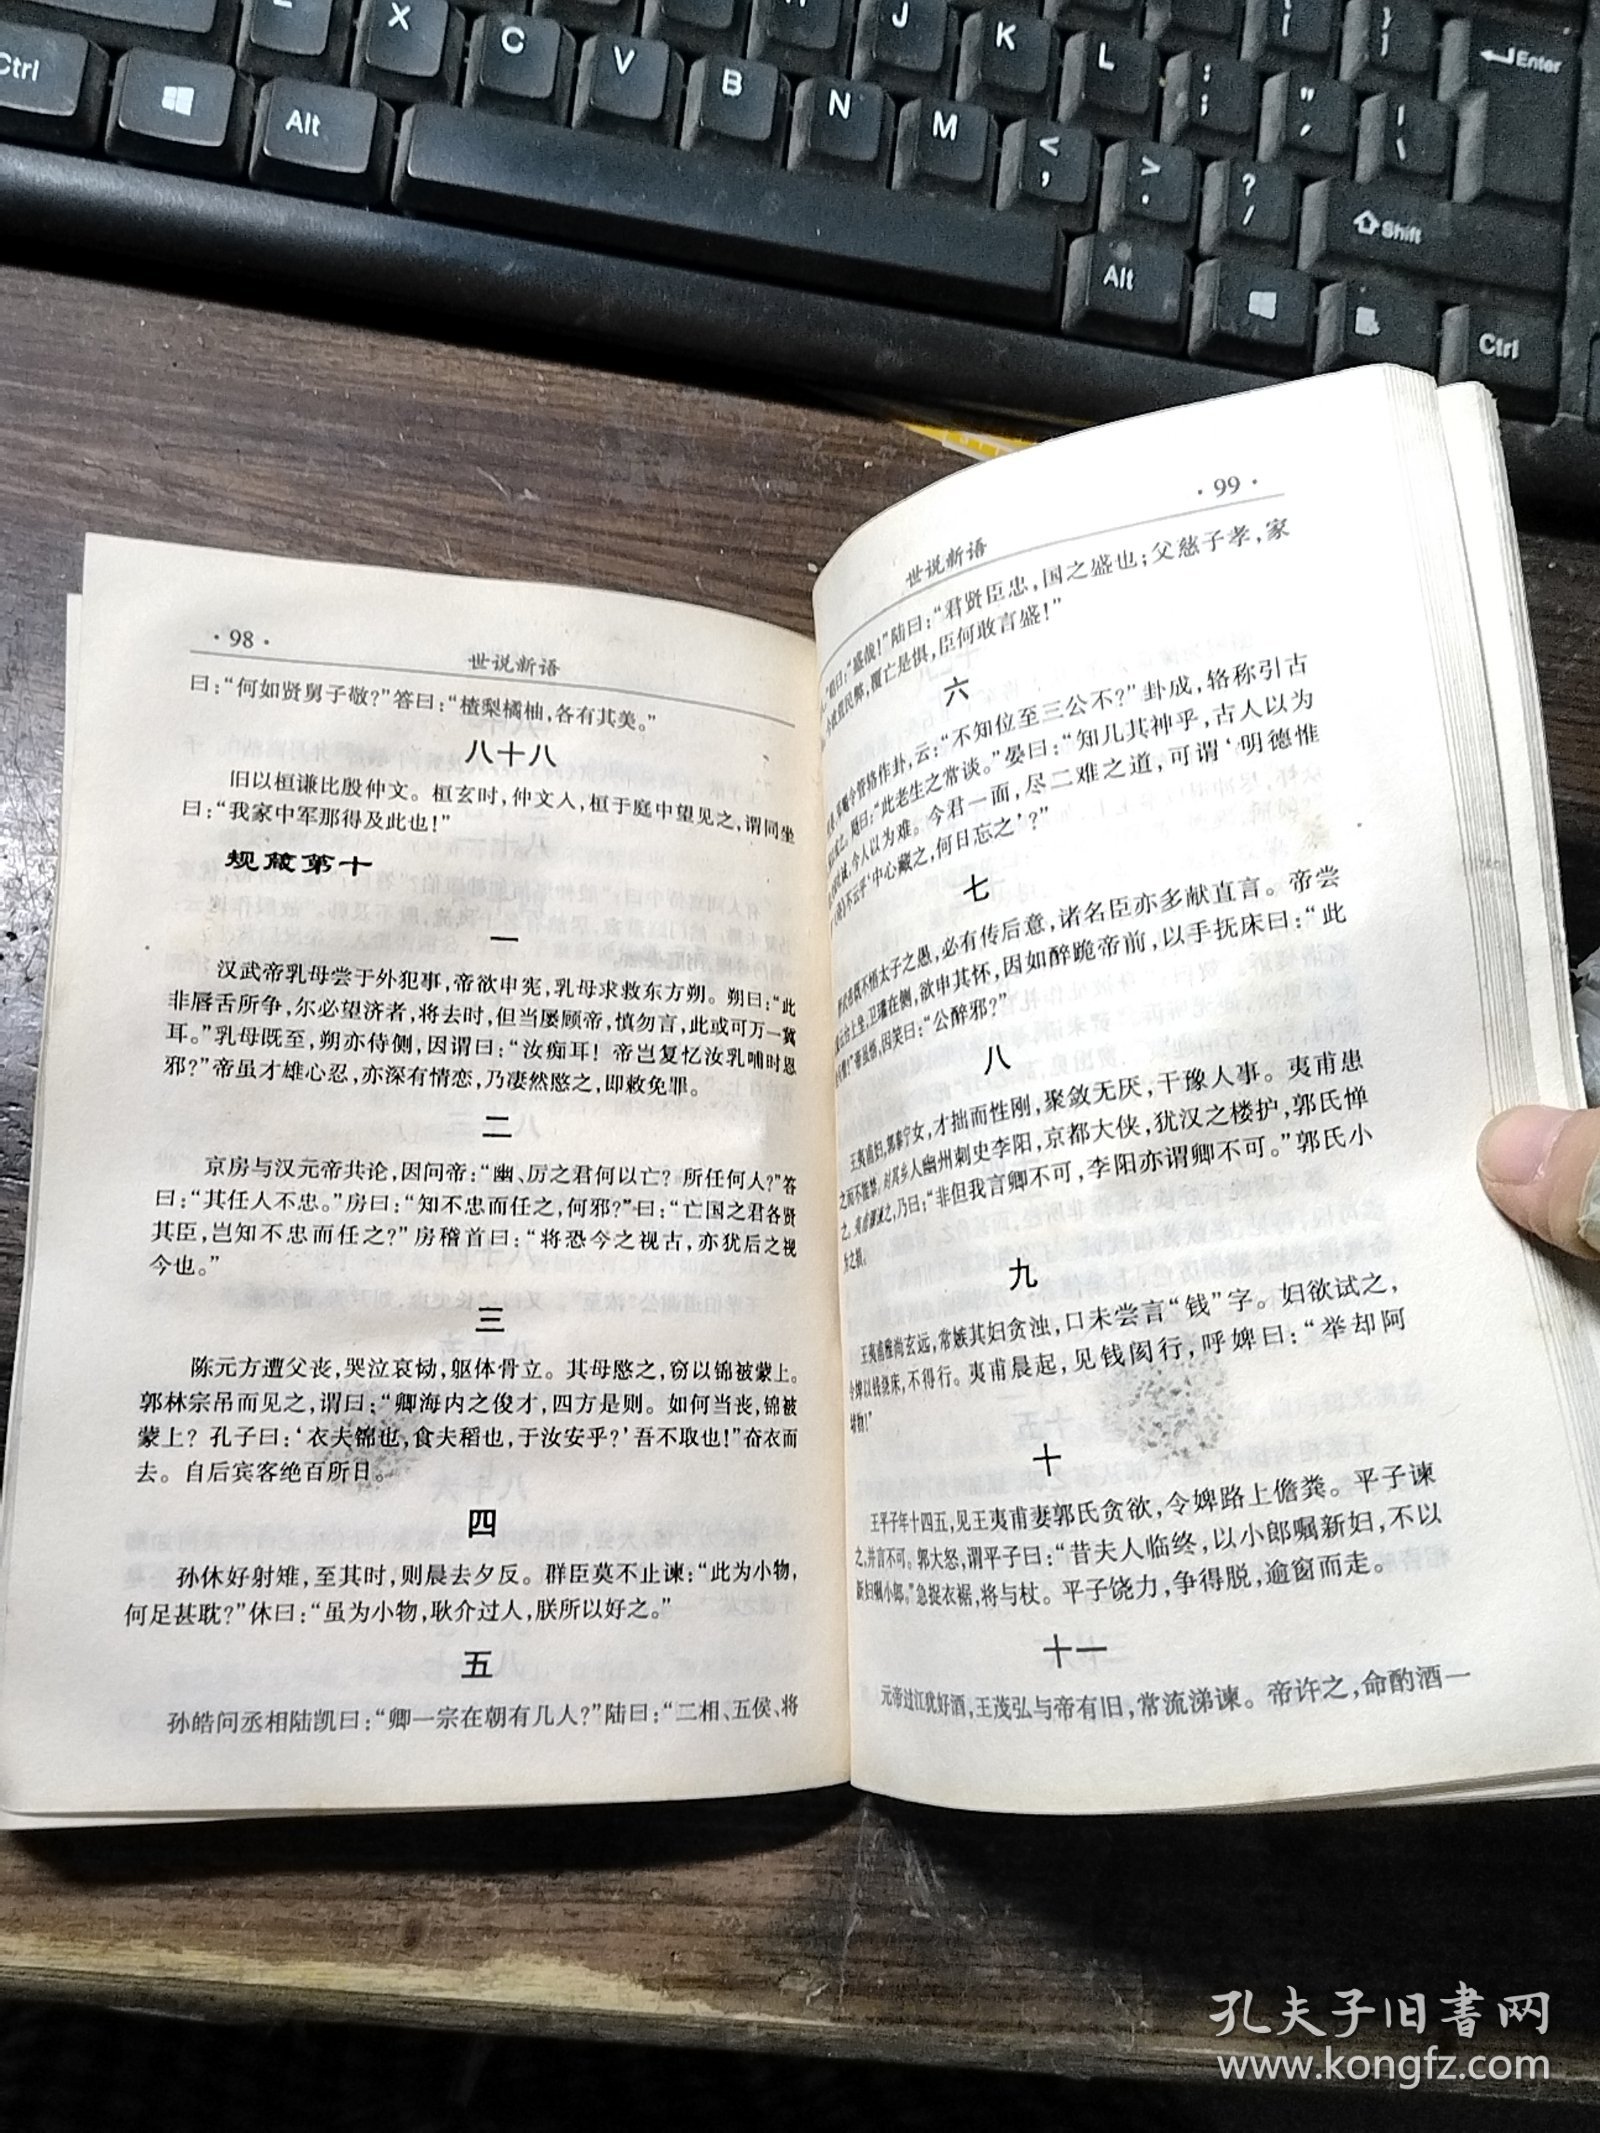 · 98 ·
世说新语
曰：“何如贤舅子敬？”答曰：“楂梨橘柚，各有其美。”
八十八
旧以桓谦比殷仲文。桓玄时，仲文入，桓于庭中望见之，谓同坐
曰：“我家中军那得及此也！”
规箴第十
一
汉武帝乳母尝于外犯事，帝欲申宪，乳母求救东方朔。朔曰：“此
非唇舌所争，尔必望济者，将去时，但当屡顾帝，慎勿言，此或可万一冀
耳。”乳母既至，朔亦侍侧，因谓曰：“汝痴耳！帝岂复忆汝乳哺时恩
邪？”帝虽才雄心忍，亦深有情恋，乃凄然愍之，即敕免罪。
二
京房与汉元帝共论，因问帝：“幽、厉之君何以亡？所任何人？”答
曰：“其任人不忠。”房曰：“知不忠而任之，何邪？”曰：“亡国之君各贤
其臣，岂知不忠而任之？”房稽首曰：“将恐今之视古，亦犹后之视
今也。”
三
陈元方遭父丧，哭泣哀恸，躯体骨立。其母愍之，窃以锦被蒙上。
郭林宗吊而见之，谓曰：“卿海内之俊才，四方是则。如何当丧，锦被
蒙上？孔子曰：‘衣夫锦也，食夫稻也，于汝安乎？’吾不取也！”奋衣而
去。自后宾客绝百所日。
四
孙休好射雉，至其时，则晨去夕反。群臣莫不止谏：“此为小物，
何足甚耽？”休曰：“虽为小物，耿介过人，朕所以好之。”
五
孙皓问丞相陆凯曰：“卿一宗在朝有几人？”陆曰：“二相、五侯、将
· 99 ·
世说新语
皓曰：“盛哉！”陆曰：“君贤臣忠，国之盛也；父慈子孝，家
民弊，覆亡是惧，臣何敢言盛！”
六
令管辂作卦，云：“不知位至三公不？”卦成，辂称引古
曰：“此老生之常谈。”晏曰：“知几其神乎，古人以为
今人以为难。今君一面，尽二难之道，可谓‘明德惟
不云乎‘中心藏之，何日忘之’？”
七
既不悟太子之愚，必有传后意，诸名臣亦多献直言。帝尝
台上坐，卫瓘在侧，欲申其怀，因如醉跪帝前，以手抚床曰：“此
帝虽悟，因笑曰：“公醉邪？”
八
王夷甫妇，郭泰宁女，才拙而性刚，聚敛无厌，干豫人事。夷甫患
之而不能禁。时其乡人幽州刺史李阳，京都大侠，犹汉之楼护，郭氏惮
之。夷甫骤谏之，乃曰：“非但我言卿不可，李阳亦谓卿不可。”郭氏小
为之损。
九
王夷甫雅尚玄远，常嫉其妇贪浊，口未尝言“钱”字。妇欲试之，
令婢以钱绕床，不得行。夷甫晨起，见钱阂行，呼婢曰：“举却阿
堵物！”
十
王平子年十四五，见王夷甫妻郭氏贪欲，令婢路上儋粪。平子谏
之，并言不可。郭大怒，谓平子曰：“昔夫人临终，以小郎嘱新妇，不以
新妇嘱小郎。”急捉衣裾，将与杖。平子饶力，争得脱，逾窗而走。
十一
元帝过江犹好酒，王茂弘与帝有旧，常流涕谏。帝许之，命酌酒一
X
C
V
B
N
M
J
K
L
Enter
Ctrl
Alt
Shift
Alt
Ctrl
孔夫子旧书网
www.kongfz.com